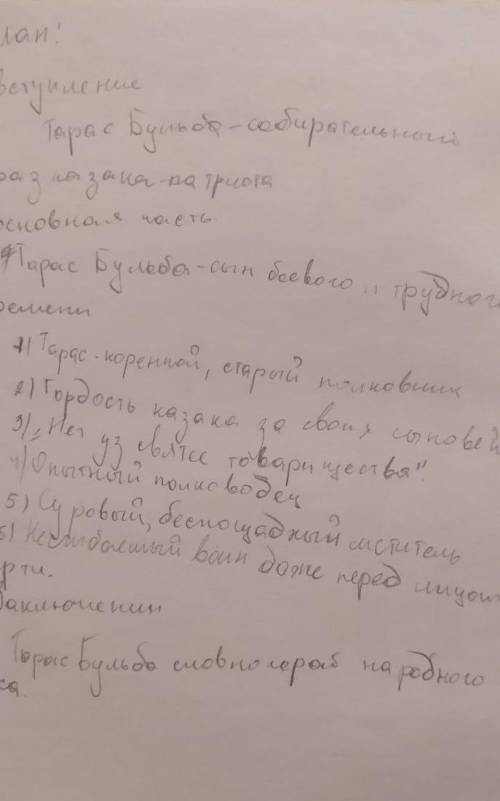 лан!
вступление
Тарас Бульба - собирательный
раз казака-патриота
основная часть
Тарас Бульба - сын боевого и трудного
ремени
1) Тарас - коренной, старый полковник
2) Гордость казака за своих сыновей
3) "Нет уз святее товарищества"
4) Опытный полководец
5) Суровый, беспощадный мститель
6) Несгибаемый воин даже перед лицом
рти.
Заключении
Тарас Бульба словно герой народного
са.